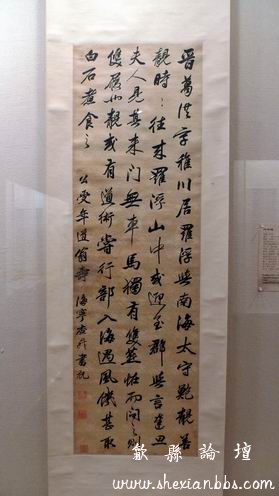 晋葛洪字稚川居羅浮與南海太守鮑靚善
靚時〻往來羅浮山中或迎至郡與言達旦
夫人見其來門無車馬獨有雙燕怪而問之則
雙履也靚或有道術嘗行部入海遇風俄甚取
白石煮食之
公受年道翁壽 海寧 書祝
歙縣論壇
www.shexianbbs.com